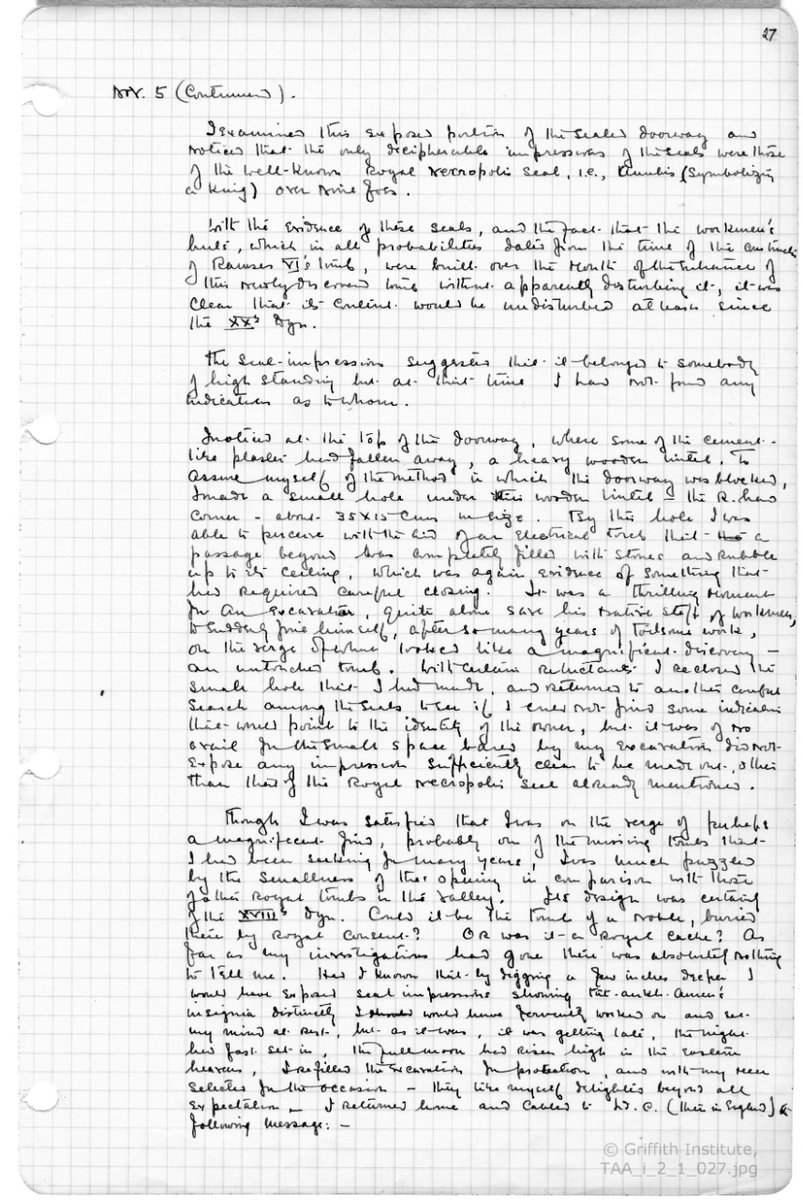 27
Nov. 5 (Continued).
I examined this exposed portion of the sealed doorway and
noticed that the only decipherable impressions of the seals were those
of the well-known Royal Necropolis seal, i.e., Anubis (symbolizing
a King) over nine foes.
With the evidence of these seals, and the fact that the workmen's
huts, which in all probabilities dates from the time of the construction
of Ramses VI's tomb, were built over the mouth of the entrance of
this newly discovered tomb without apparently disturbing it, it was
clear that its content would be undisturbed at least since
the XXs Dyn.
The seal-impressions suggested that it belonged to somebody
of high standing but at that time I had not found any
indications as to whom.
I noticed at the top of the doorway, where some of the cement-
like plaster had fallen away, a heavy wooden lintel. To
assure myself of the method in which the doorway was blocked,
I made a small hole under this wooden lintel – the R. hand
corner – about 35 X 15 cms in size. By this hole I was
able to perceive with the aid of an electrical torch that a
passage beyond was completely filled with stones and rubble
up to its ceiling, which was again evidence of something that
had required careful closing. It was a thrilling moment
for an excavator, quite alone save his native staff of workmen,
to suddenly find himself, after so many years of toilsome work,
on the verge of what looked like a magnificent discovery –
an untouched tomb. With certain reluctance I reclosed the
small hole that I had made, and returned to another careful
search among the seals to see if I could not find some indication
that would point to the identity of the owner, but it was of no
avail for the small space bared by my excavation did not
expose any impression sufficiently clear to be made out, other
than that of the Royal Necropolis seal already mentioned.
Though I was satisfied that I was on the verge of perhaps
a magnificent find, probably one of the missing tombs that
I had been seeking for many years, I was much puzzled
by the smallness of the opening in comparison with those
of other Royal tombs in the valley. Its design was certainly
of the XVIIIs Dyn. Could it be the tomb of a noble, buried
there by Royal consent? OR was it a Royal cache? As
far as my investigations had gone there was absolutely nothing
to tell me. Had I known that by digging a few inches deeper I
would have exposed seal impressions showing Tut.ankh.Amen's
insignia distinctly I would have fervently worked on and set
my mind at rest, but as it was, it was getting late, the night
had fast set in, the full moon had risen high in the eastern
heavens, I refilled the excavation for protection, and with my men
selected for the occasion – they like myself delighted beyond all
expectation – I returned home and cabled to Ld. C. (then in England) a
following message: –
© Griffith Institute,
TAA_i_2_1_027.jpg